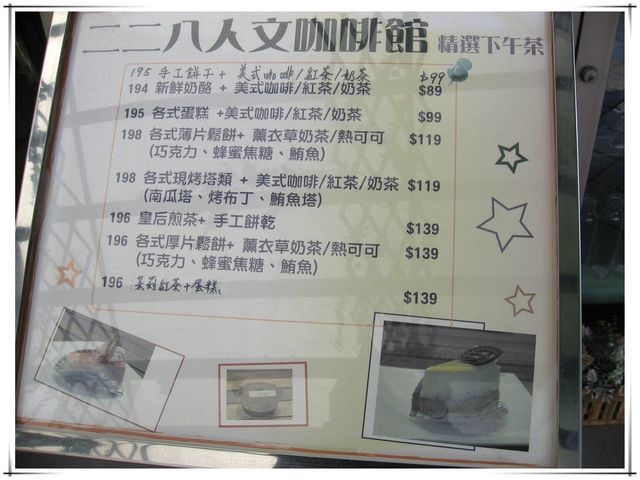 二二八人文咖啡館 精選下午茶
195 手工餅干 + 美式咖啡/紅茶/奶茶 $99
194 新鮮奶酪 + 美式咖啡/紅茶/奶茶 $89
195 各式蛋糕 +美式咖啡/紅茶/奶茶 $99
198 各式薄片鬆餅+ 薰衣草奶茶/熱可可 $119
(巧克力、蜂蜜焦糖、鮪魚)
198 各式現烤塔類 + 美式咖啡/紅茶/奶茶 $119
(南瓜塔、烤布丁、鮪魚塔)
196 皇后煎茶+ 手工餅乾 $139
196 各式厚片鬆餅+ 薰衣草奶茶/熱可可 $139
(巧克力、蜂蜜焦糖、鮪魚)
196 茉莉紅茶+蛋糕 $139